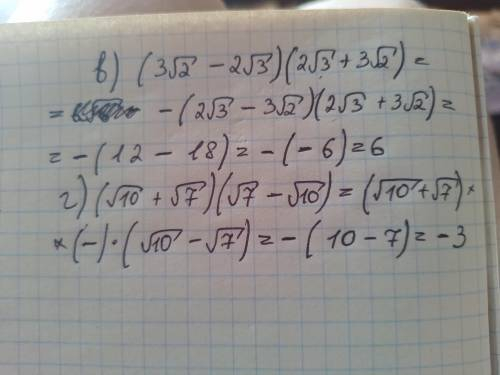 в) (3√2 - 2√3)(2√3 + 3√2) =
= - (2√3 - 3√2)(2√3 + 3√2) =
= - (12 - 18) = - (- 6) = 6
г) (√10 + √7)(√7 - √10) = (√10 + √7) ×
× (-) · (√10 - √7) = - (10 - 7) = - 3